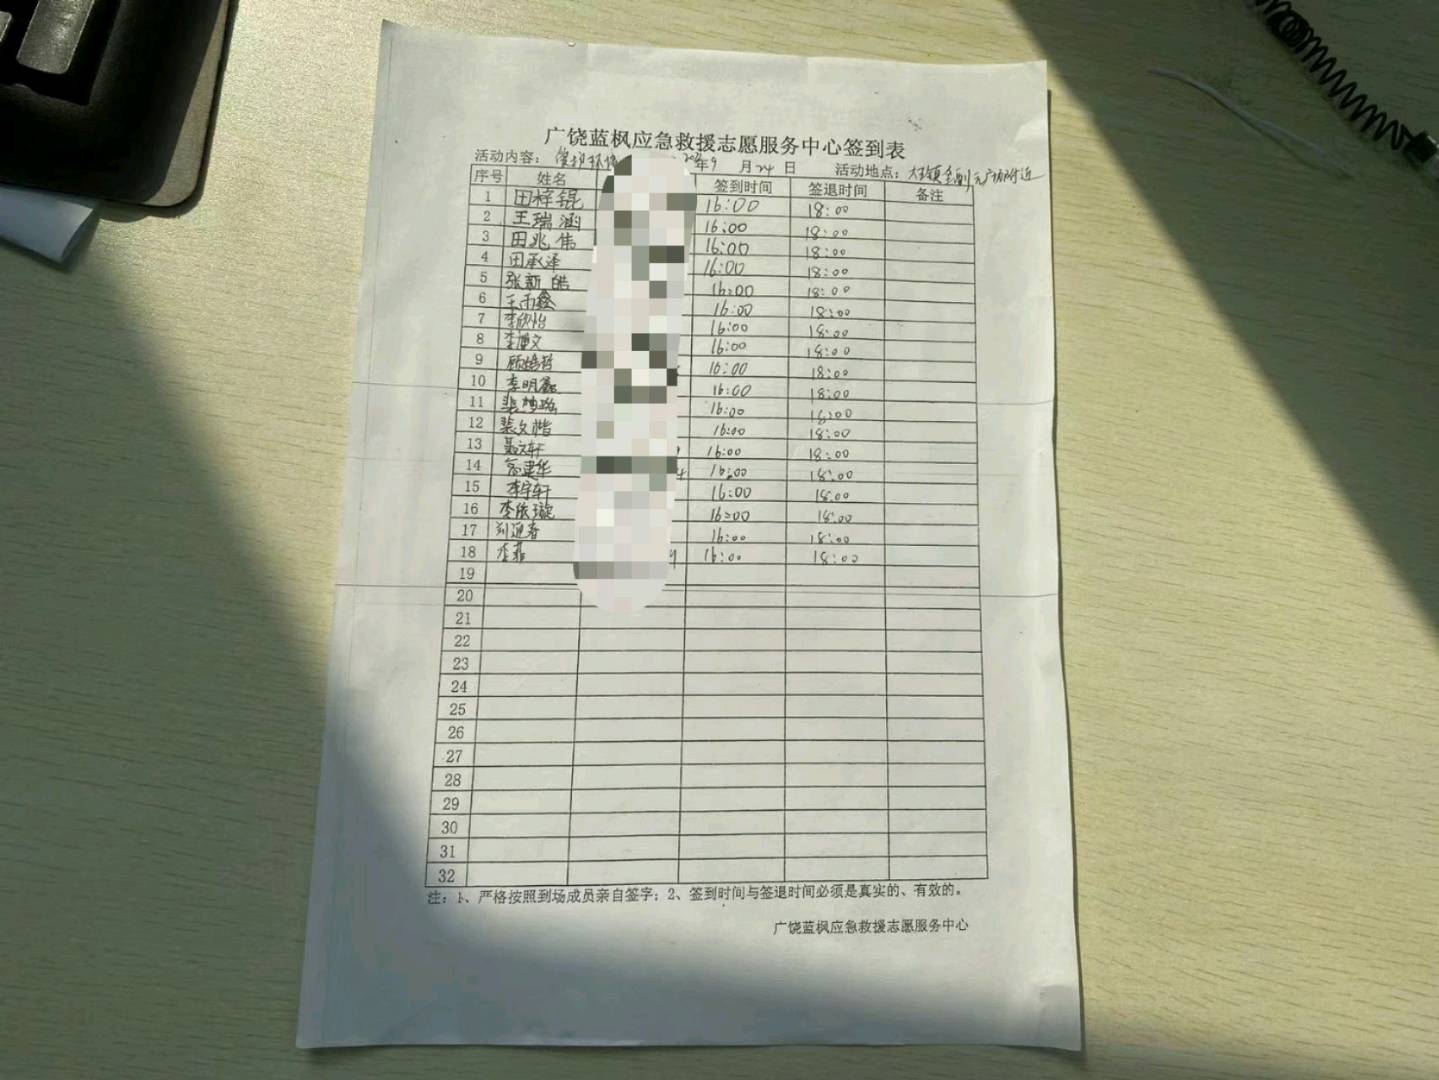 广饶蓝枫应急救援志愿服务中心签到表
活动内容： 年9 月24日 活动地点：
序号 姓名 签到时间 签退时间 备注
1 田梓锟 16:00 18:00
2 王瑞涵 16:00 18:00
3 田兆伟 16:00 18:00
4 田承泽 16:00 18:00
5 张新皓 16:00 18:00
6 王雨鑫 16:00 18:00
7 李欣怡 16:00 18:00
8 李博文 16:00 18:00
9 16:00 18:00
10 李明鑫 16:00 18:00
11 16:00 18:00
12 裴文楷 16:00 18:00
13 聂文轩 16:00 18:00
14 16:00 18:00
15 李宇轩 16:00 18:00
16 李依璇 16:00 18:00
17 刘迎春 16:00 18:00
18 李菲 16:00 18:00
19
20
21
22
23
24
25
26
27
28
29
30
31
32
注：1、严格按照到场成员亲自签字；2、签到时间与签退时间必须是真实的、有效的。
广饶蓝枫应急救援志愿服务中心